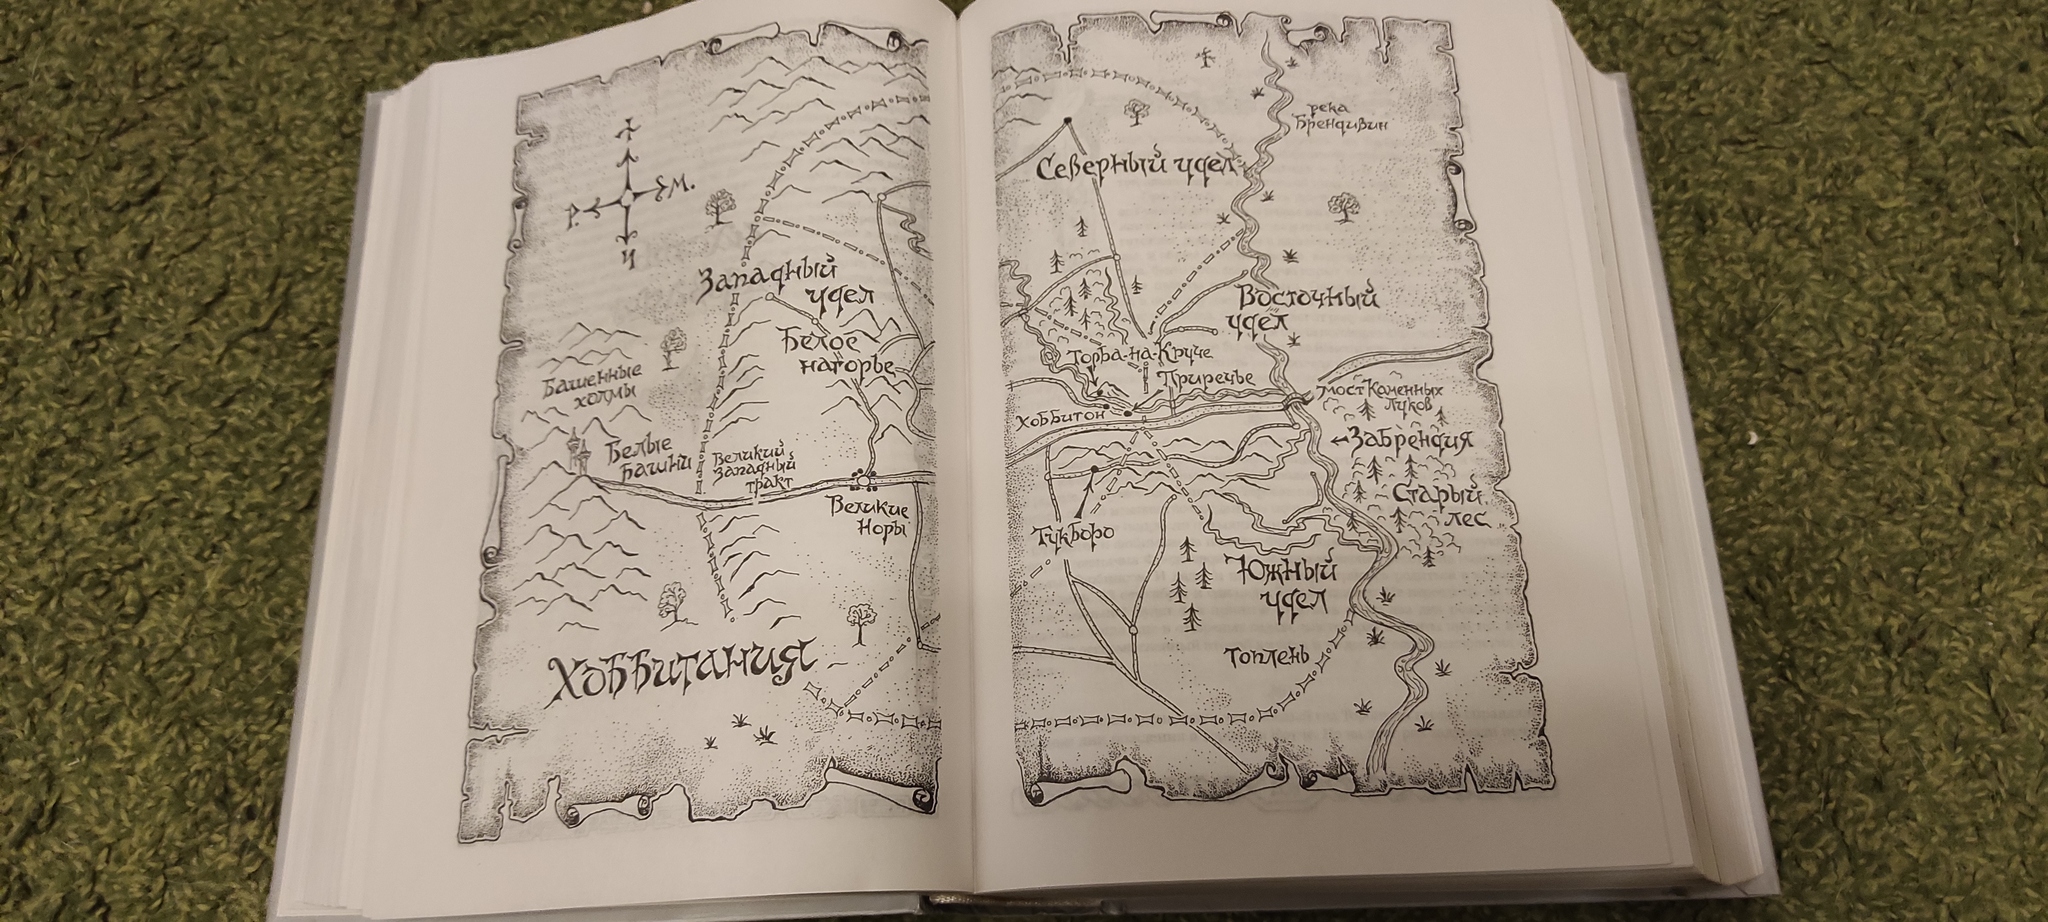 М.
Р.
Ч
Западный
удел
Белое
нагорье
Башенные
холмы
Белые
Башни
Великий
Западный
тракт
Великие
Норы
Хоббитания
река
Брендивин
Северный удел
Восточный
удел
Торба-на-Круче
Приречье
Хоббитон
Мост Каменных
Луков
Забрендия
Старый
лес
Тукборо
Южный
удел
Топлень